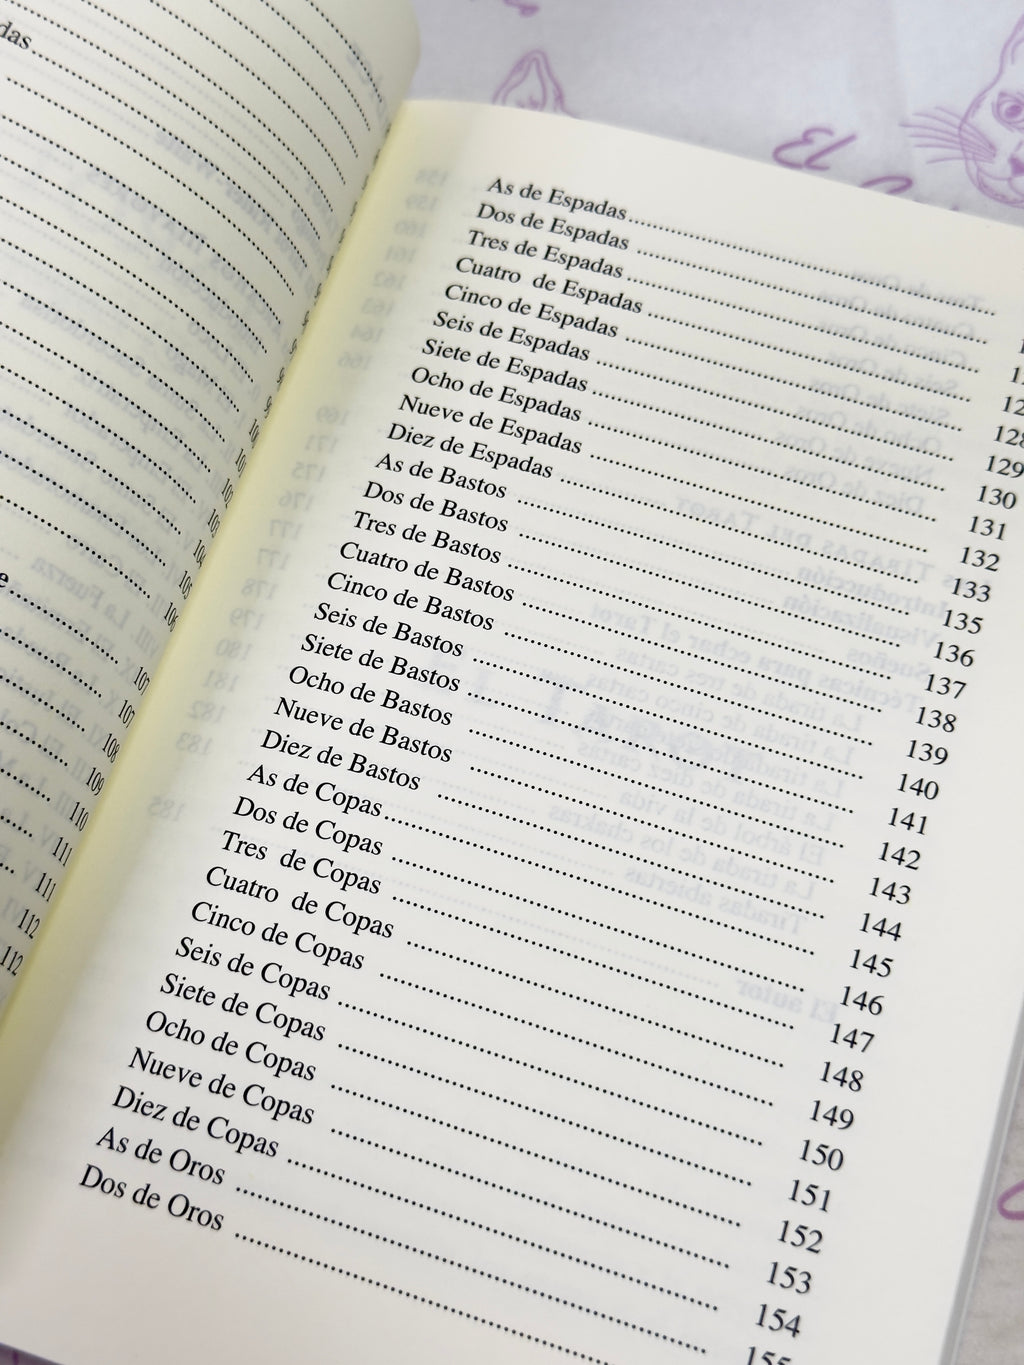 102
103
104
105
106
107
107
108
109
110
111
111
112
112
As de Espadas
Dos de Espadas
Tres de Espadas
Cuatro de Espadas
Cinco de Espadas 128
Seis de Espadas 129
Siete de Espadas 130
Ocho de Espadas 131
Nueve de Espadas 132
Diez de Espadas 133
As de Bastos 135
Dos de Bastos 136
Tres de Bastos 137
Cuatro de Bastos 138
Cinco de Bastos 139
Seis de Bastos 140
Siete de Bastos 141
Ocho de Bastos 142
Nueve de Bastos 143
Diez de Bastos 144
As de Copas 145
Dos de Copas 146
Tres de Copas 147
Cuatro de Copas 148
Cinco de Copas 149
Seis de Copas 150
Siete de Copas 151
Ocho de Copas 152
Nueve de Copas 153
Diez de Copas 154
As de Oros 155
Dos de Oros
El